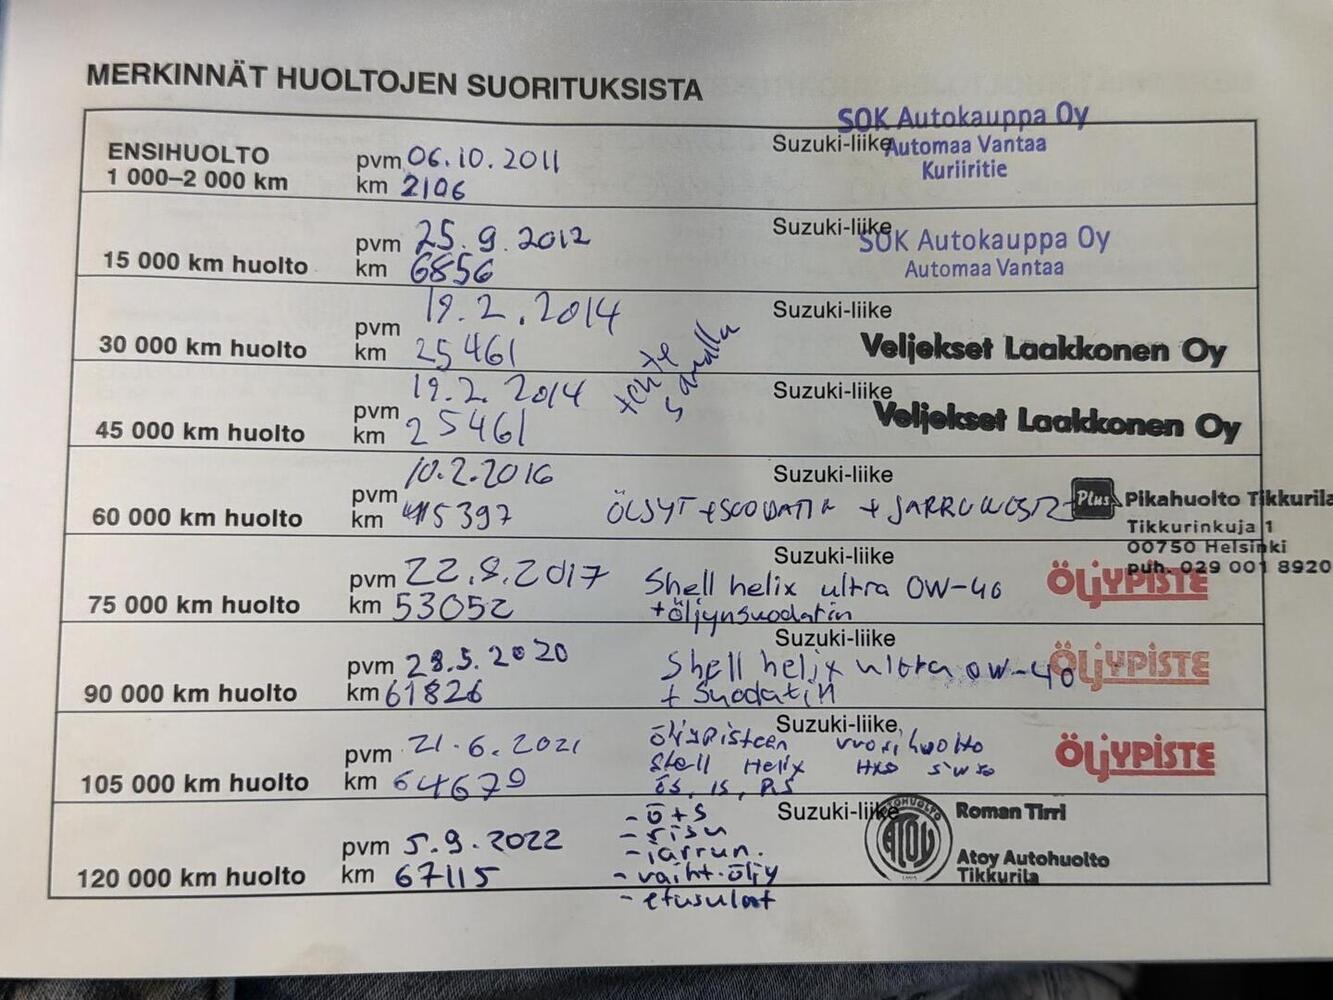 MERKINNÄT HUOLTOJEN SUORITUKSISTA
ENSIHUOLTO
1 000–2 000 km
pvm 06.10.2011
km 2106
Suzuki-liike
SOK Autokauppa Oy
Automaa Vantaa
Kuriiritie
15 000 km huolto
pvm 25.9.2012
km 6856
Suzuki-liike
SOK Autokauppa Oy
Automaa Vantaa
30 000 km huolto
pvm 19.2.2014
km 25461
Suzuki-liike
Veljekset Laakkonen Oy
45 000 km huolto
pvm 19.2.2014
km 25461
tehty
samalla
Suzuki-liike
Veljekset Laakkonen Oy
60 000 km huolto
pvm 10.2.2016
km 45397
Suzuki-liike
+ JARRUNESTE
Plus Pikahuolto Tikkurila
Tikkurinkuja 1
00750 Helsinki
puh. 029 001 8920
75 000 km huolto
pvm 22.8.2017
km 53052
Suzuki-liike
Shell helix ultra 0W-40
+öljynsuodatin
ÖLJYPISTE
90 000 km huolto
pvm 28.5.2020
km 61826
Suzuki-liike
Shell helix ultra 0W-40
+ Suodatin
ÖLJYPISTE
105 000 km huolto
pvm 21.6.2021
km 64679
Suzuki-liike
öljypisteen vuosihuolto
Shell Helix HX8 5W30
ÖS, IS, RS
ÖLJYPISTE
120 000 km huolto
pvm 5.9.2022
km 67115
Suzuki-liike
- ö+s
- risu
- jarrun.
- vaiht.öljy
- etusulat
AUTOHUOLTO
ATOY
Roman Tirri
Atoy Autohuolto
Tikkurila